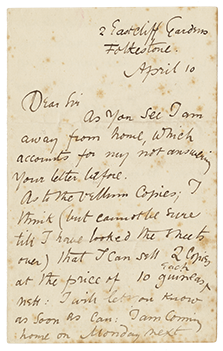 2 Eastcliff Gardens
Folkestone.
April 10
Dear Sir
As you see I am
away from home, which
accounts for my not answering
your letter before.
As to the vellum copies; I
think (but cannot be sure
till I have looked the sheets
over) that I can sell 2 copies
at the price of 10 guineas each
nett: I will let you know
as soon as can: I am coming
home on Monday next